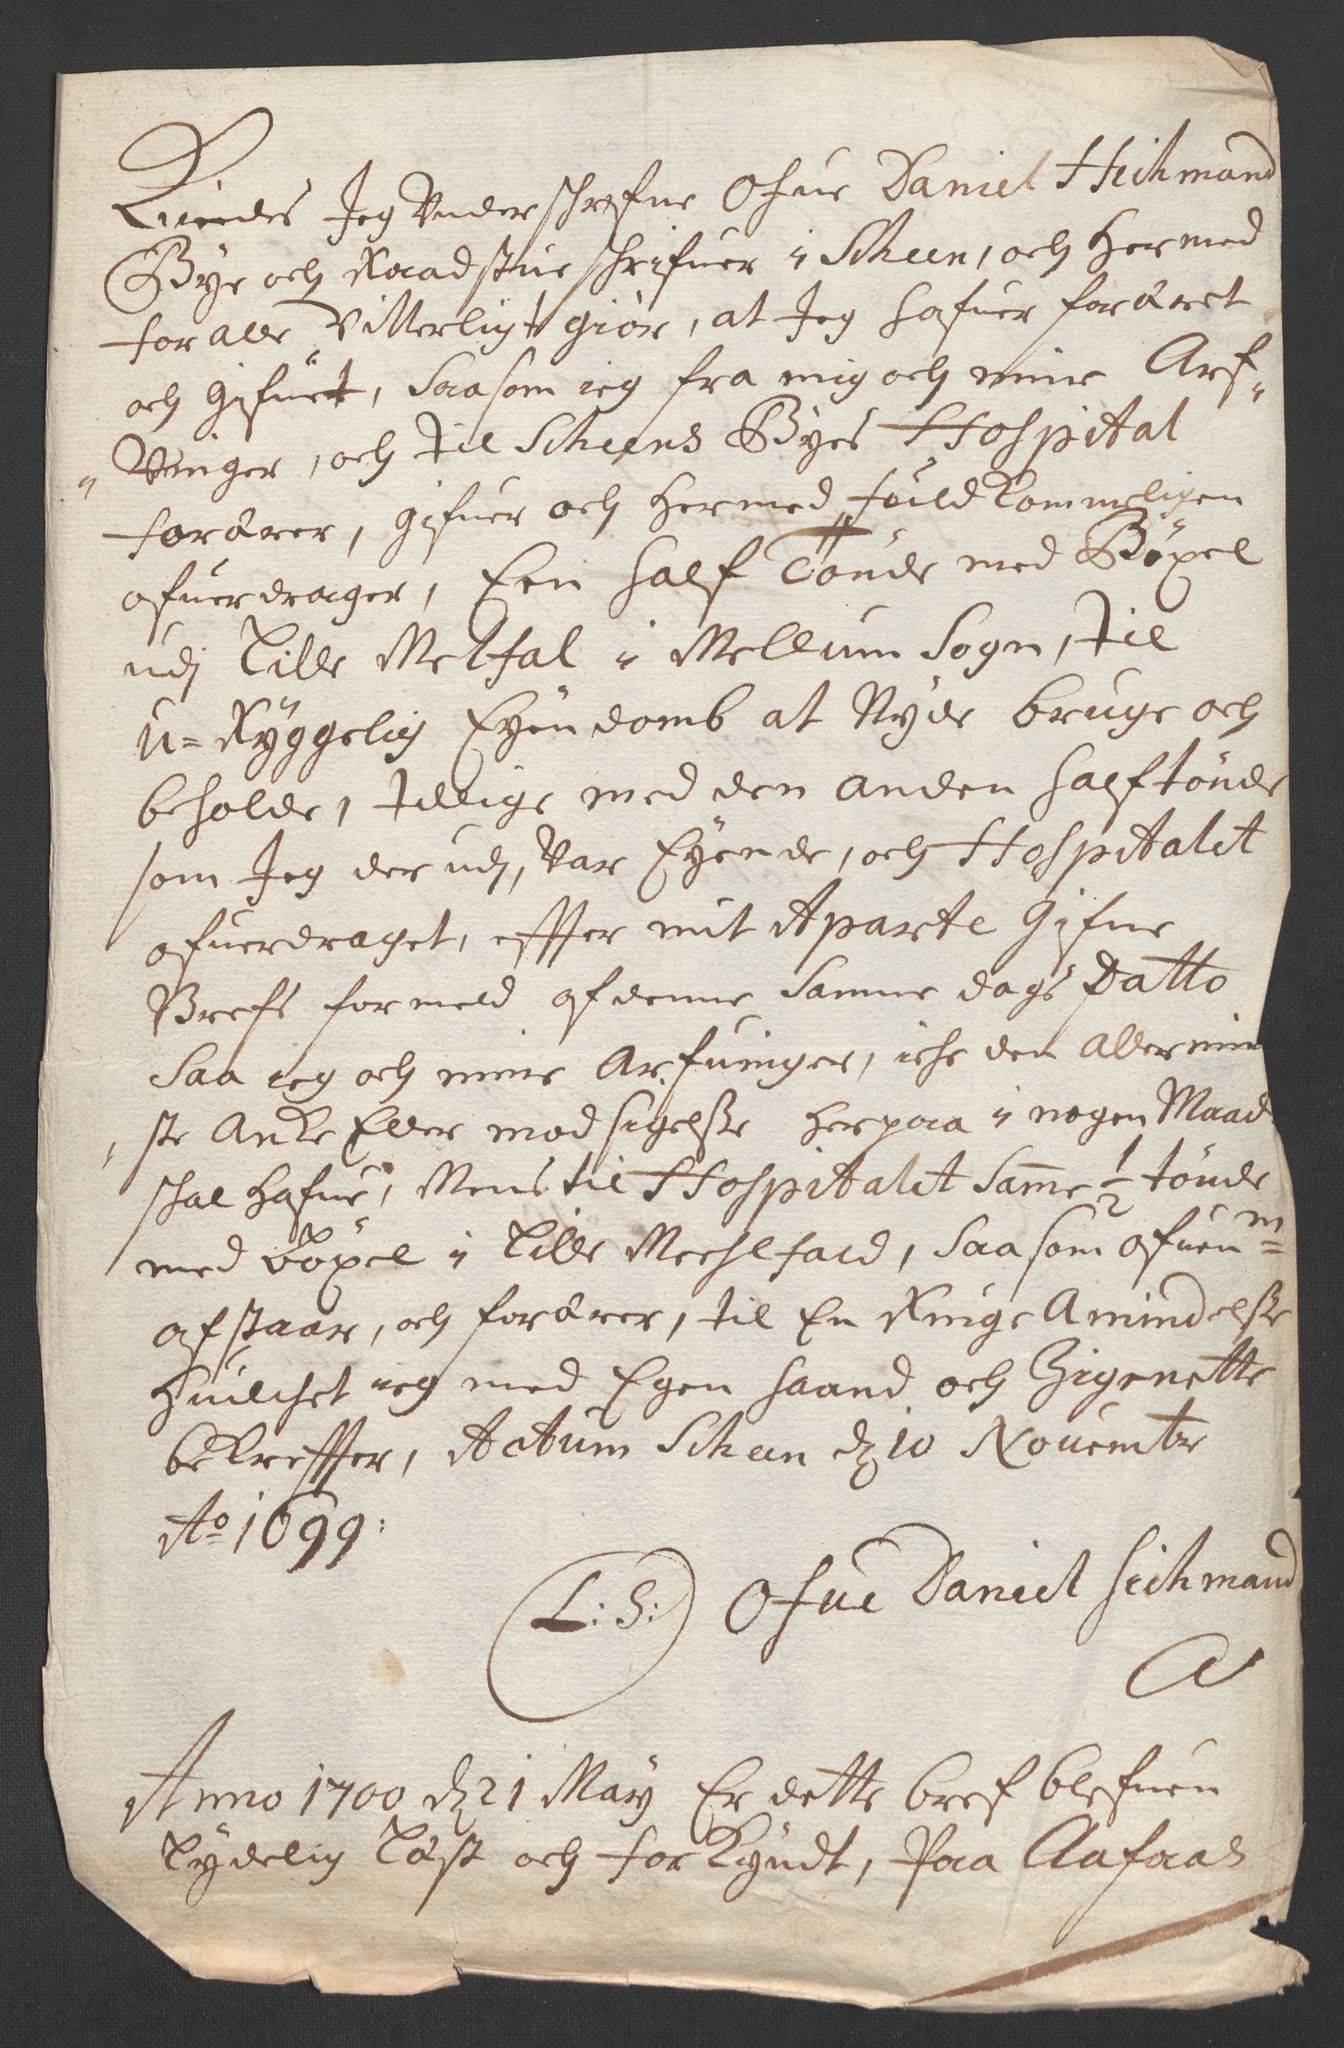 Kiendes Jeg Underschrefne Ofue Daniel Heihmand
Bye och Raadstue schrifuer i Scheen, och hermed
for alle Vitterligt giør, at Jeg hafuer foræret
och gifuet, Saasom ieg fra mig och mine Arf„
„Vinger, och til Scheens Byes Hospital
forærer, gifuer och hermed fuldkommeligen
ofuerdrager, Een half Tønde med Bøxel
udj Lille Melfal i Mellum Sogn, til
u=Ryggelig Eyendomb at Nyde bruge och
beholde, tillige med den anden half tønde
som Jeg der udj, Var Eyende, och Hospitalet
ofuerdraget, effter mit Aparte gifne
Brefs formeld af denne Samme dags Datto
Saa ieg och mine Arfuinger, iche den allermin
ste Anke Eller modsigelße herpaa i nogen Maade
schal hafue, Mens til Hospitalet Samme ½ tønde
med bøxel i Lille Meehlfald, Saasom ofuen m=
afstaar, och forærer, til En Ringe Amindelße
huilchet ieg med Egen haand och Zignette
bekreffter, Actum Scheen dz 10 Novembr
Ao 1699:
L:S: Ofue Daniel Heihmand
Anno 1700 dz 21 May Er dette bref blefuen
Lydelig Læst och forkyndt, Paa Aafoas